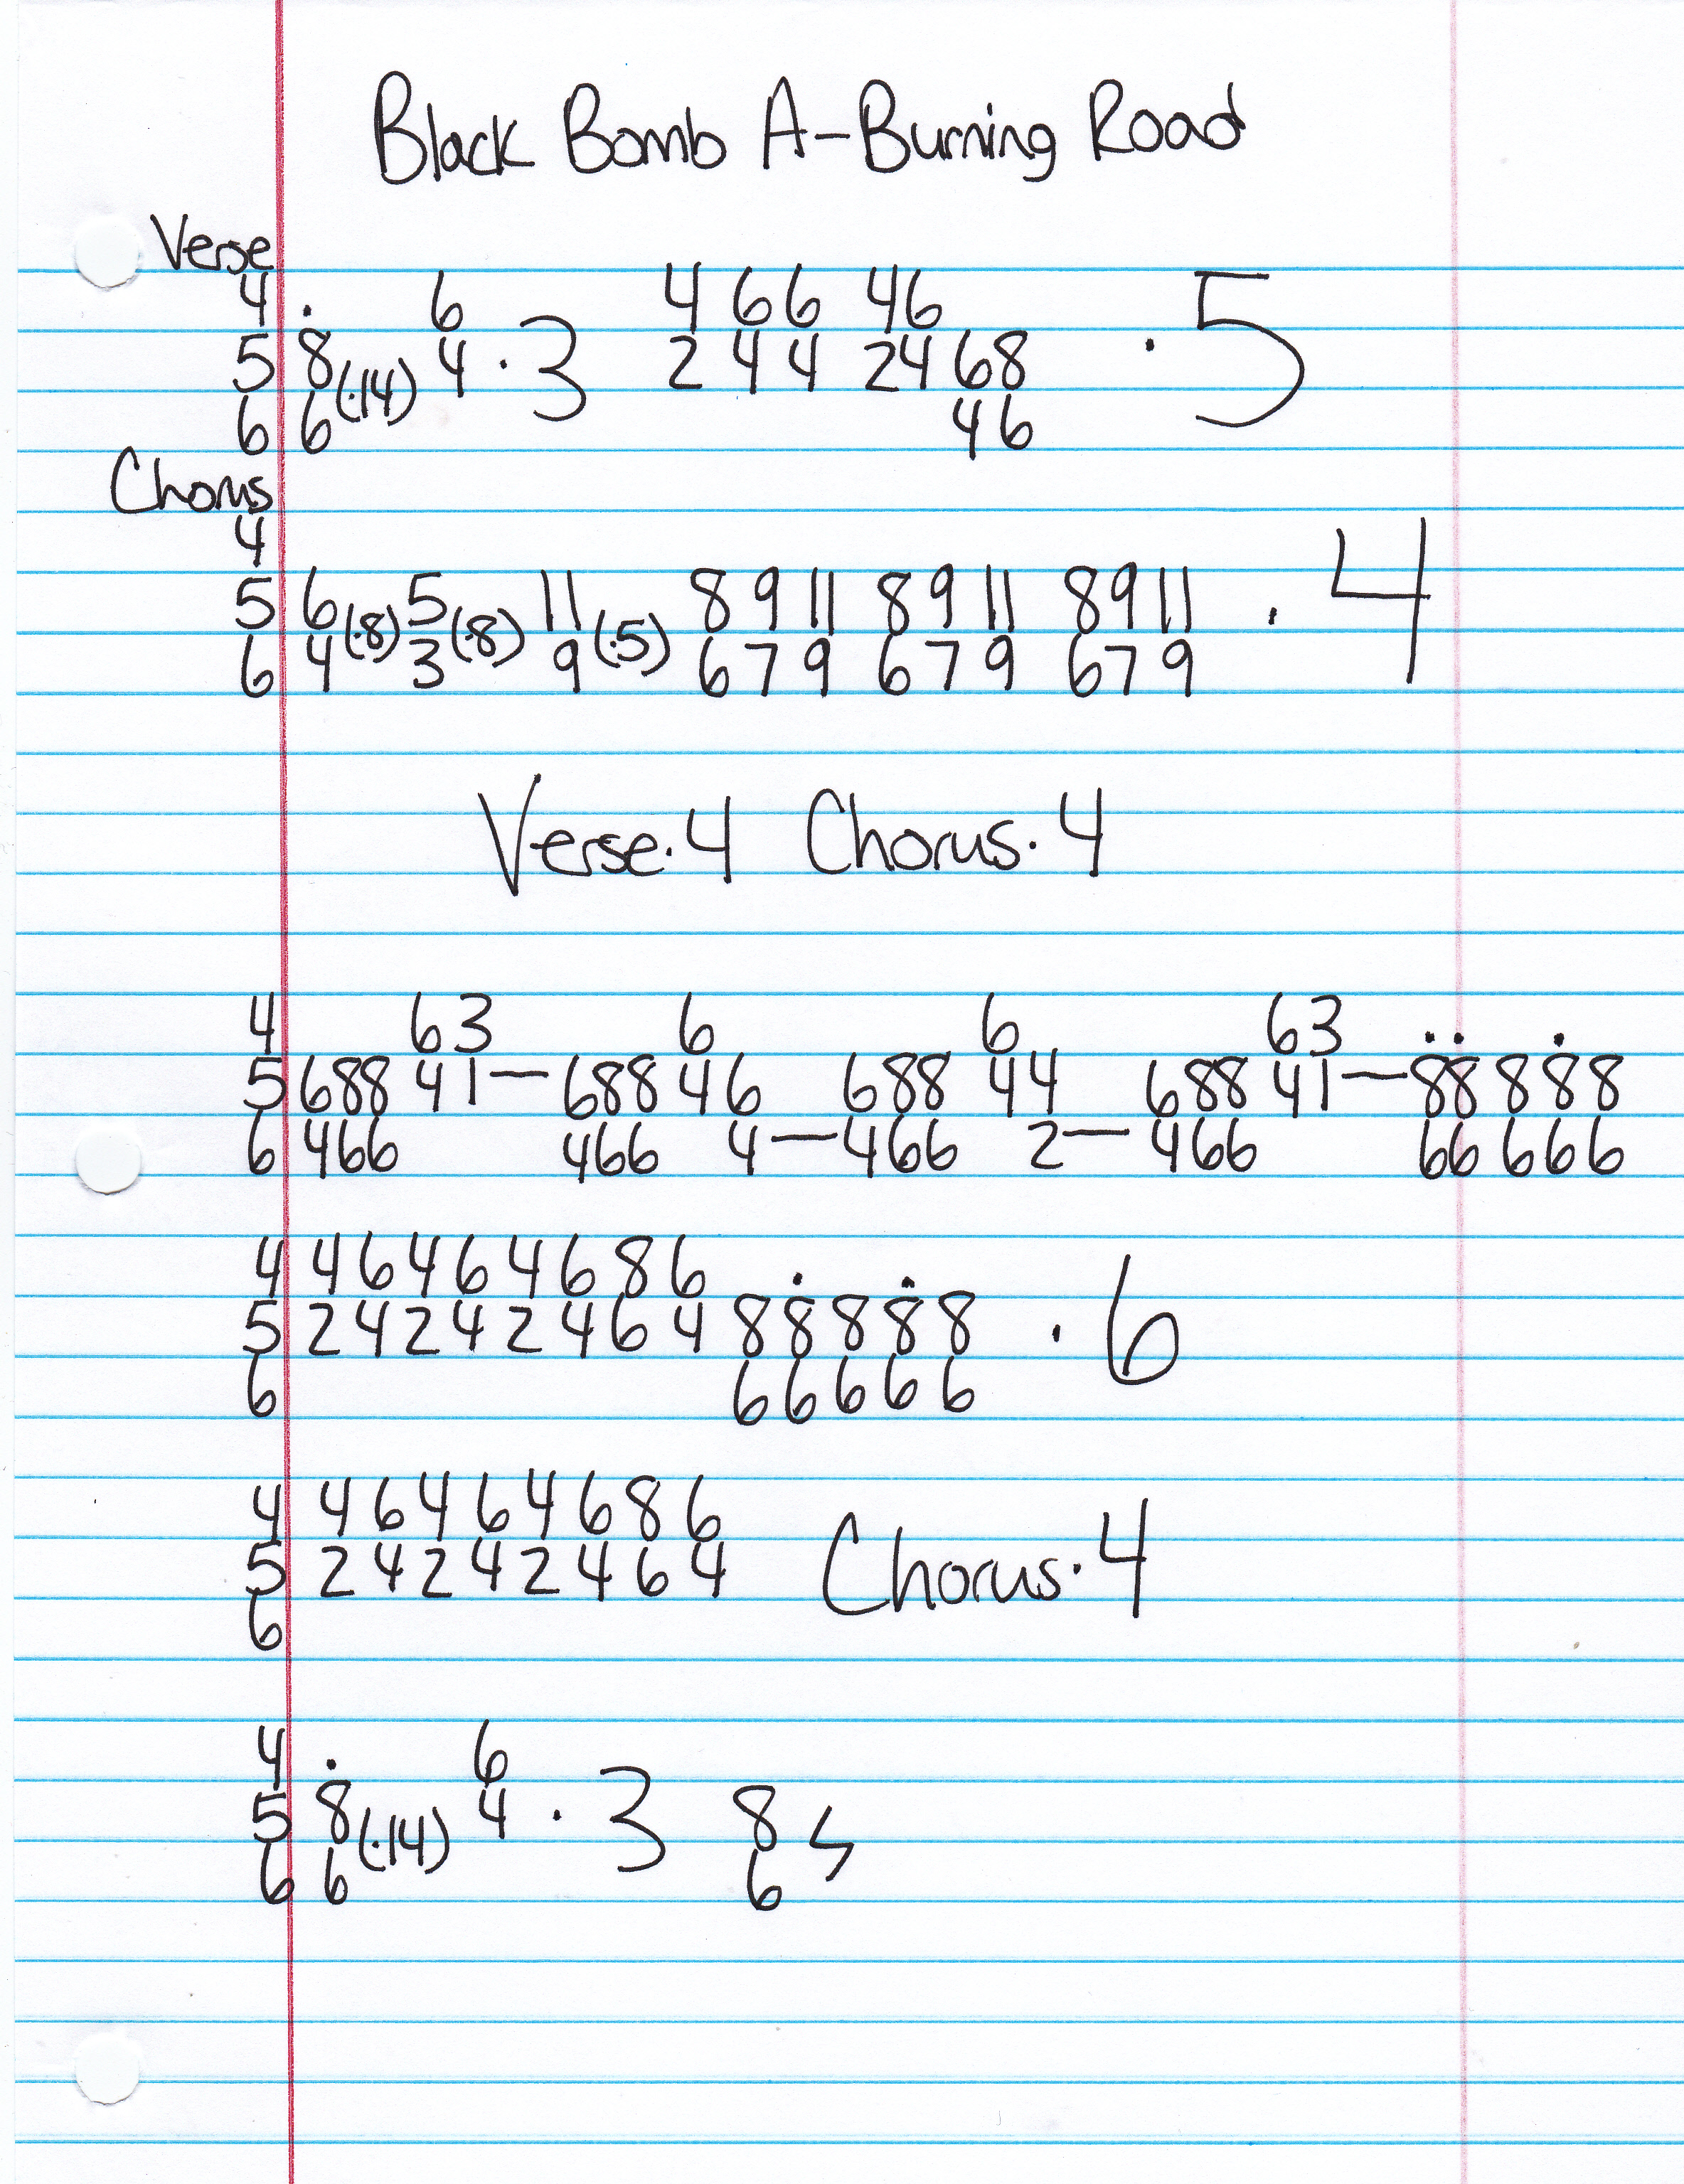 Black Bomb A-Burning Road
Verse
4 . 6 4 6 6 4 6
5 8 (·14) 4 · 3 2 4 4 2 4 6 8 · 5
6 6 4 6
Chorus
4
5 6 (·8) 5 (·8) 11 (·5) 8 9 11 8 9 11 8 9 11 · 4
6 4 3 9 6 7 9 6 7 9 6 7 9
Verse·4 Chorus·4
4 6 3 6 6 6 3 . . .
5 6 8 8 4 1 — 6 8 8 4 6 6 8 8 4 4 6 8 8 4 1 — 8 8 8 8 8
6 4 6 6 4 6 6 4 — 4 6 6 2 — 4 6 6 6 6 6 6 6
4 4 6 4 6 4 6 8 6 . .
5 2 4 2 4 2 4 6 4 8 8 8 8 8 · 6
6 6 6 6 6 6
4 4 6 4 6 4 6 8 6
5 2 4 2 4 2 4 6 4 Chorus·4
6
4 . 6
5 8 (·14) 4 · 3 8
6 6 6